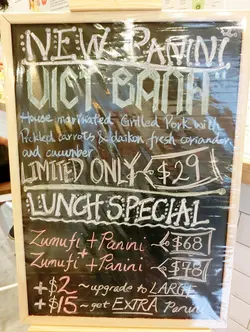 NEW PANINI
VIET BANH
House marinated Grilled Pork with
Pickled carrots & daikon fresh coriander
and cucumber
LIMITED ONLY $29
LUNCH SPECIAL
Zumufi + Panini $68
+
Zumufi + Panini $78
+$2 ~ upgrade to LARGE
+$15 ~ get EXTRA Panini